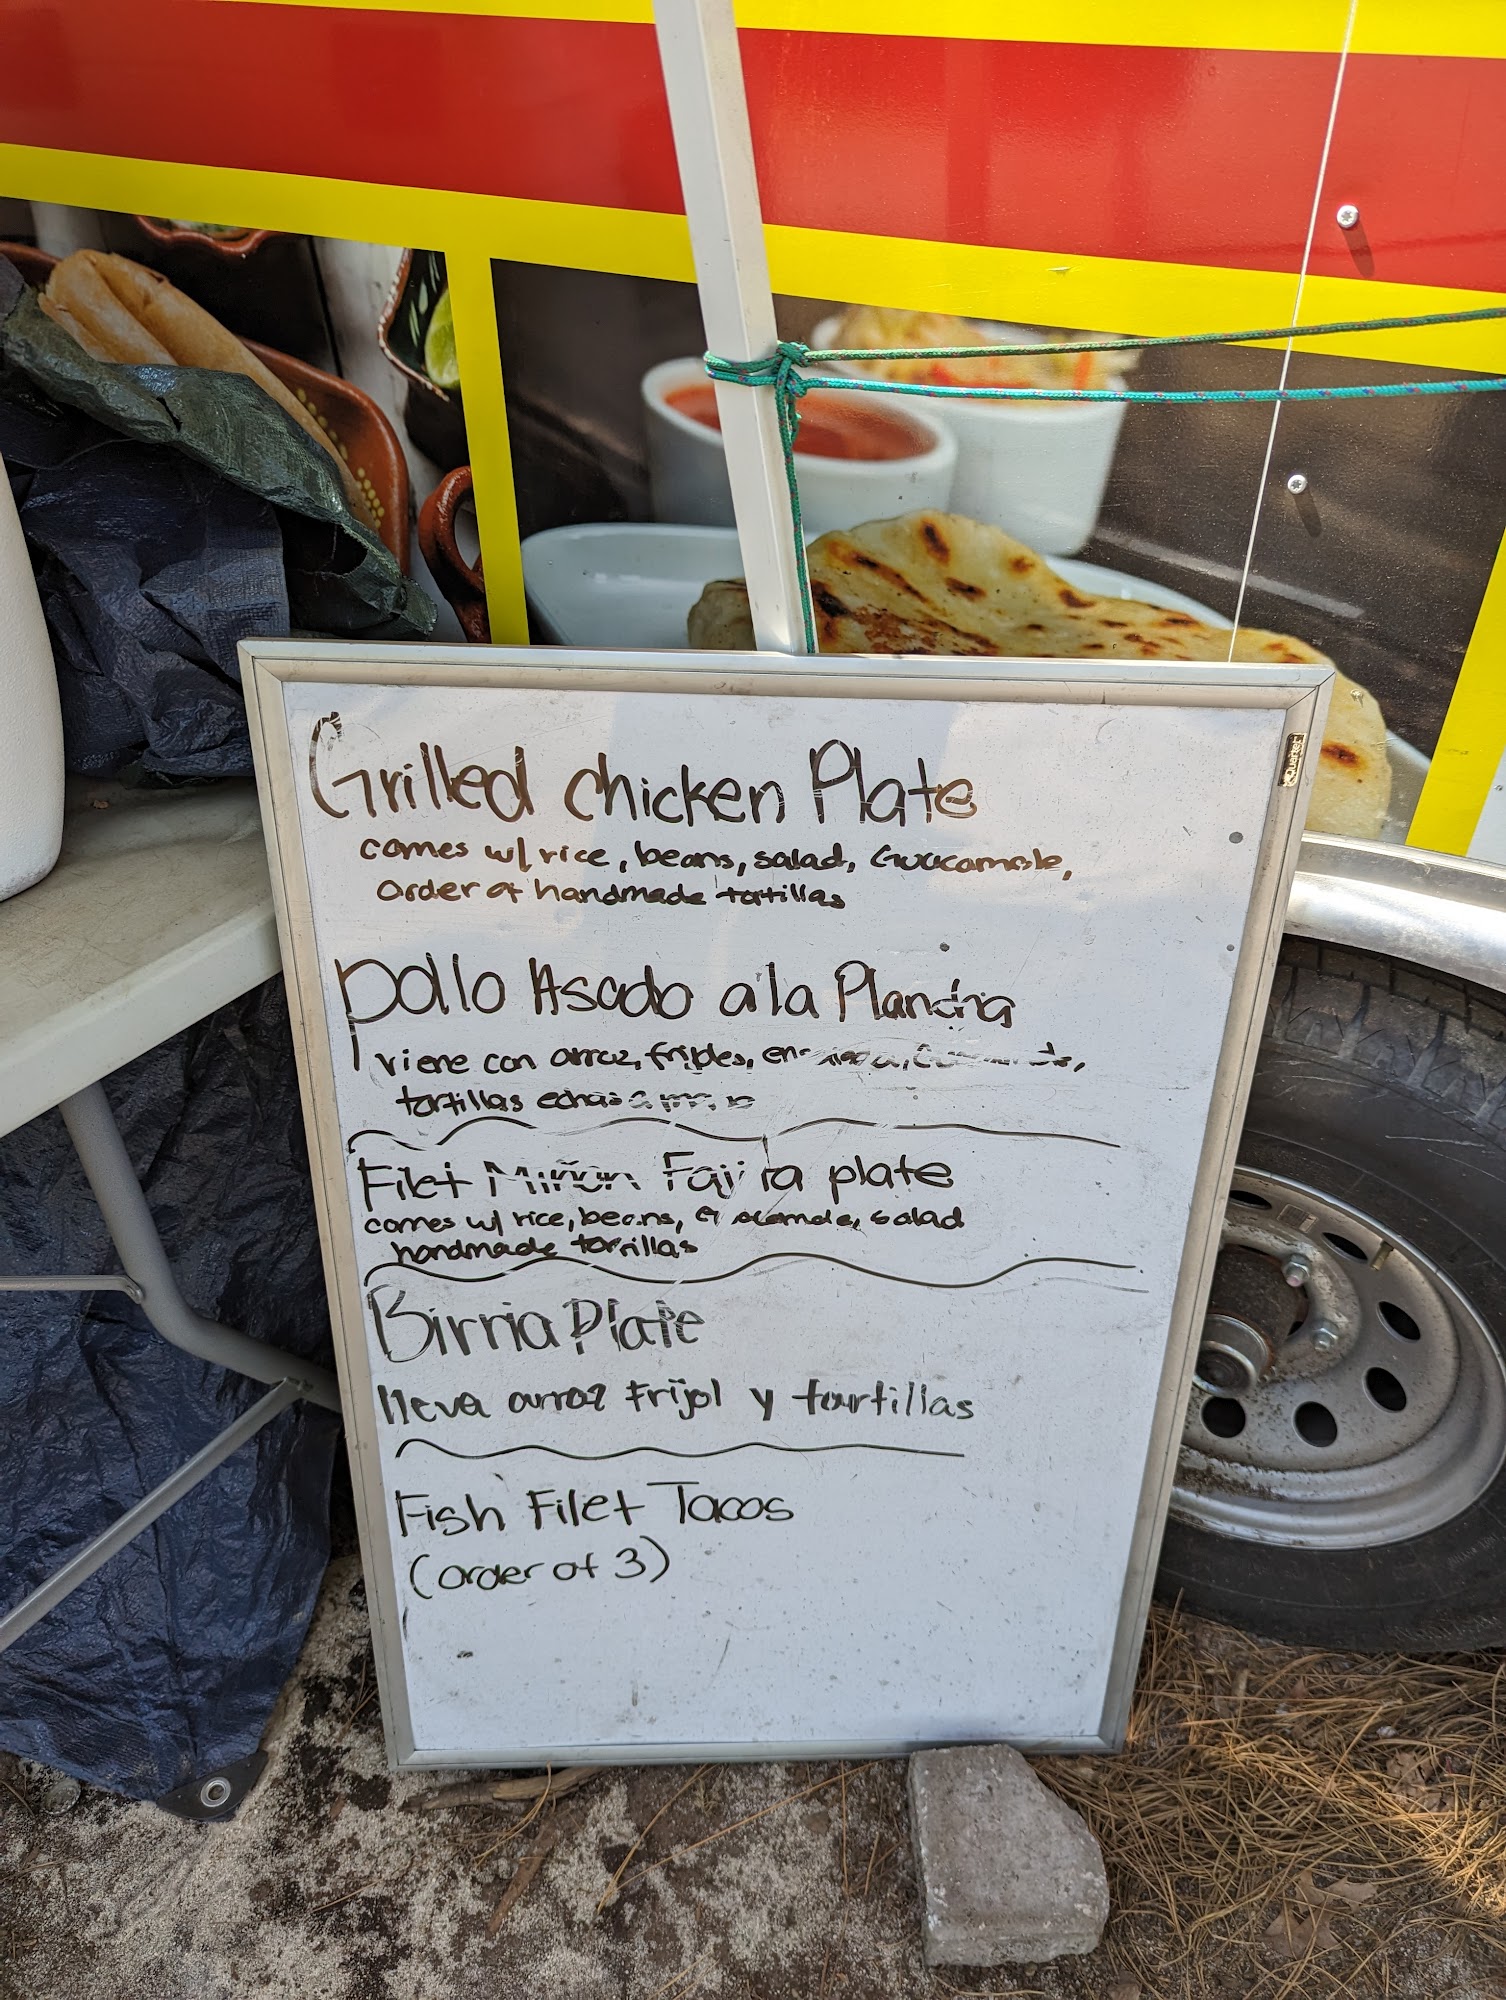 Grilled chicken Plate
comes w/ rice, beans, salad, Guacamole,
order of handmade tortillas
pollo Asado a la Plancha
viene con arroz, frijoles,
tortillas echas a mano
Filet Miñon Fajita plate
comes w/ rice, beans, salad
handmade tortillas
Birria Plate
lleva arroz Frijol y tortillas
Fish Filet Tacos
(order of 3)
Quartet